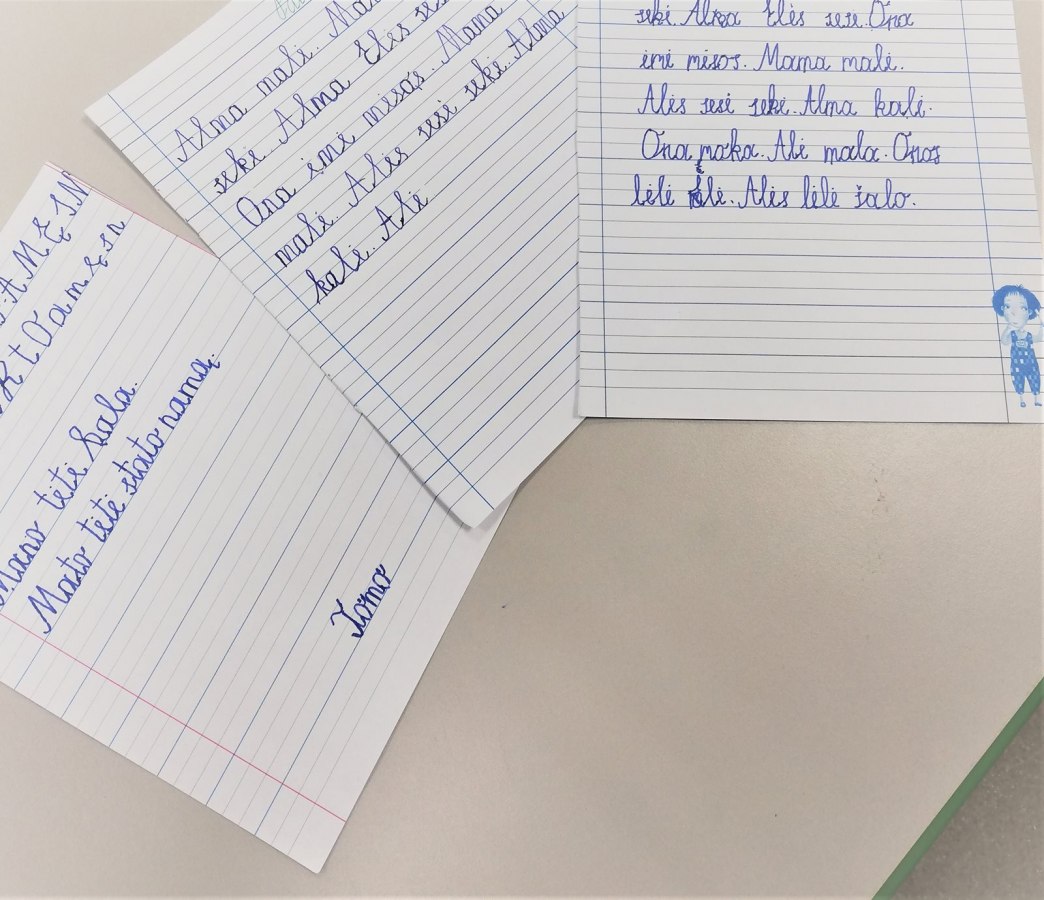 S A M Ę I N
K t O a m ę i n
Mano tėtė kala.
Mato tėtė stato namą.
Tomo
Alma malė. Ma
sekė. Alma Elės ses
Ona ėmė mėsos. Mama
malė. Alės sesė sekė. Alma
kalė. Alė
sekė. Alma Elės sese. Ona
ėmė mėsos. Mama malė.
Alės sesė sekė. Alma kalė.
Ona moka. Alė mala. Onos
lėlė. Alės lėlė šalo.